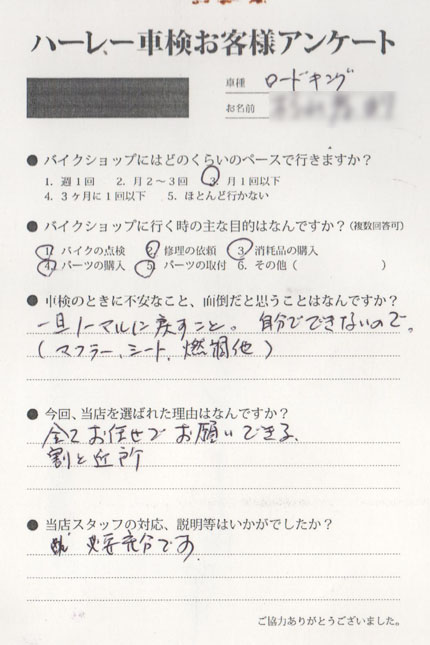 ハーレー車検お客様アンケート
車種 ロードキング
お名前
● バイクショップにはどのくらいのペースで行きますか？
1. 週1回 2. 月2～3回 3. 月1回以下
4. 3ヶ月に1回以下 5. ほとんど行かない
● バイクショップに行く時の主な目的はなんですか？(複数回答可)
1. バイクの点検 2. 修理の依頼 3. 消耗品の購入
4. パーツの購入 5. パーツの取付 6. その他 ( )
● 車検のときに不安なこと、面倒だと思うことはなんですか？
一旦ノーマルに戻すこと。自分でできないので。
(マフラー、シート、燃調他)
● 今回、当店を選ばれた理由はなんですか？
全てお任せでお願いできる、
割と近所
● 当店スタッフの対応、説明等はいかがでしたか？
必要充分です
ご協力ありがとうございました。